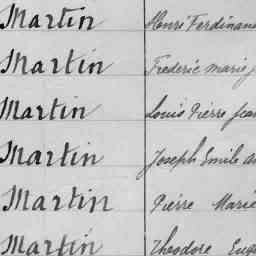 Martin Henri Ferdinand
Martin Frederic Marie
Martin Louis Pierre Jean
Martin Joseph Emile
Martin Pierre Marie
Martin Theodore